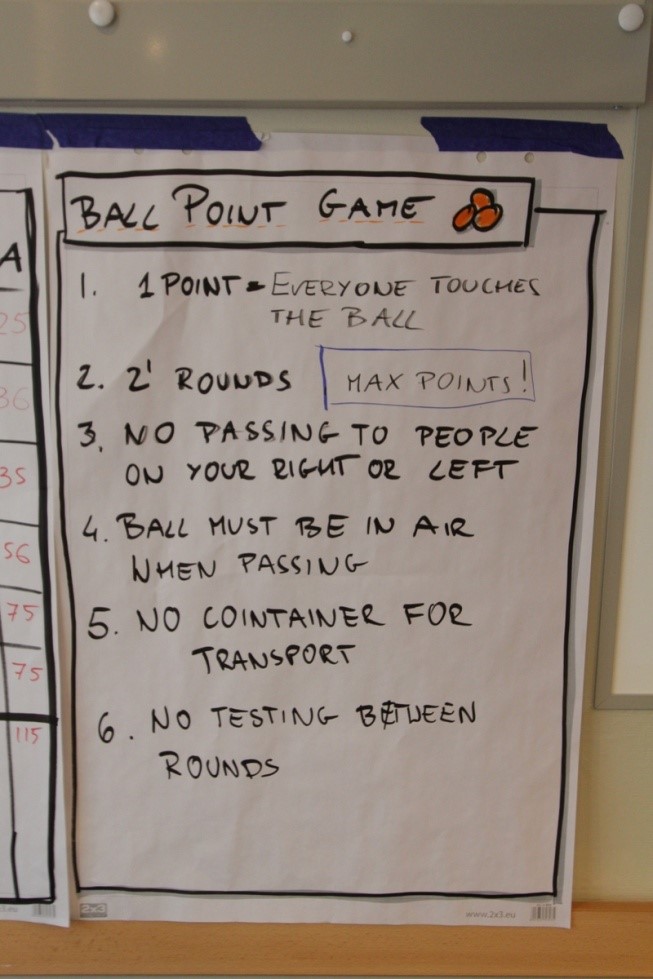 BALL POINT GAME
1. 1 POINT = EVERYONE TOUCHES
THE BALL
2. 2' ROUNDS MAX POINTS!
3. NO PASSING TO PEOPLE
ON YOUR RIGHT OR LEFT
4. BALL MUST BE IN AIR
WHEN PASSING
5. NO COINTAINER FOR
TRANSPORT
6. NO TESTING BETWEEN
ROUNDS
2x3
www.2x3.eu
A
25
36
35
56
75
75
115